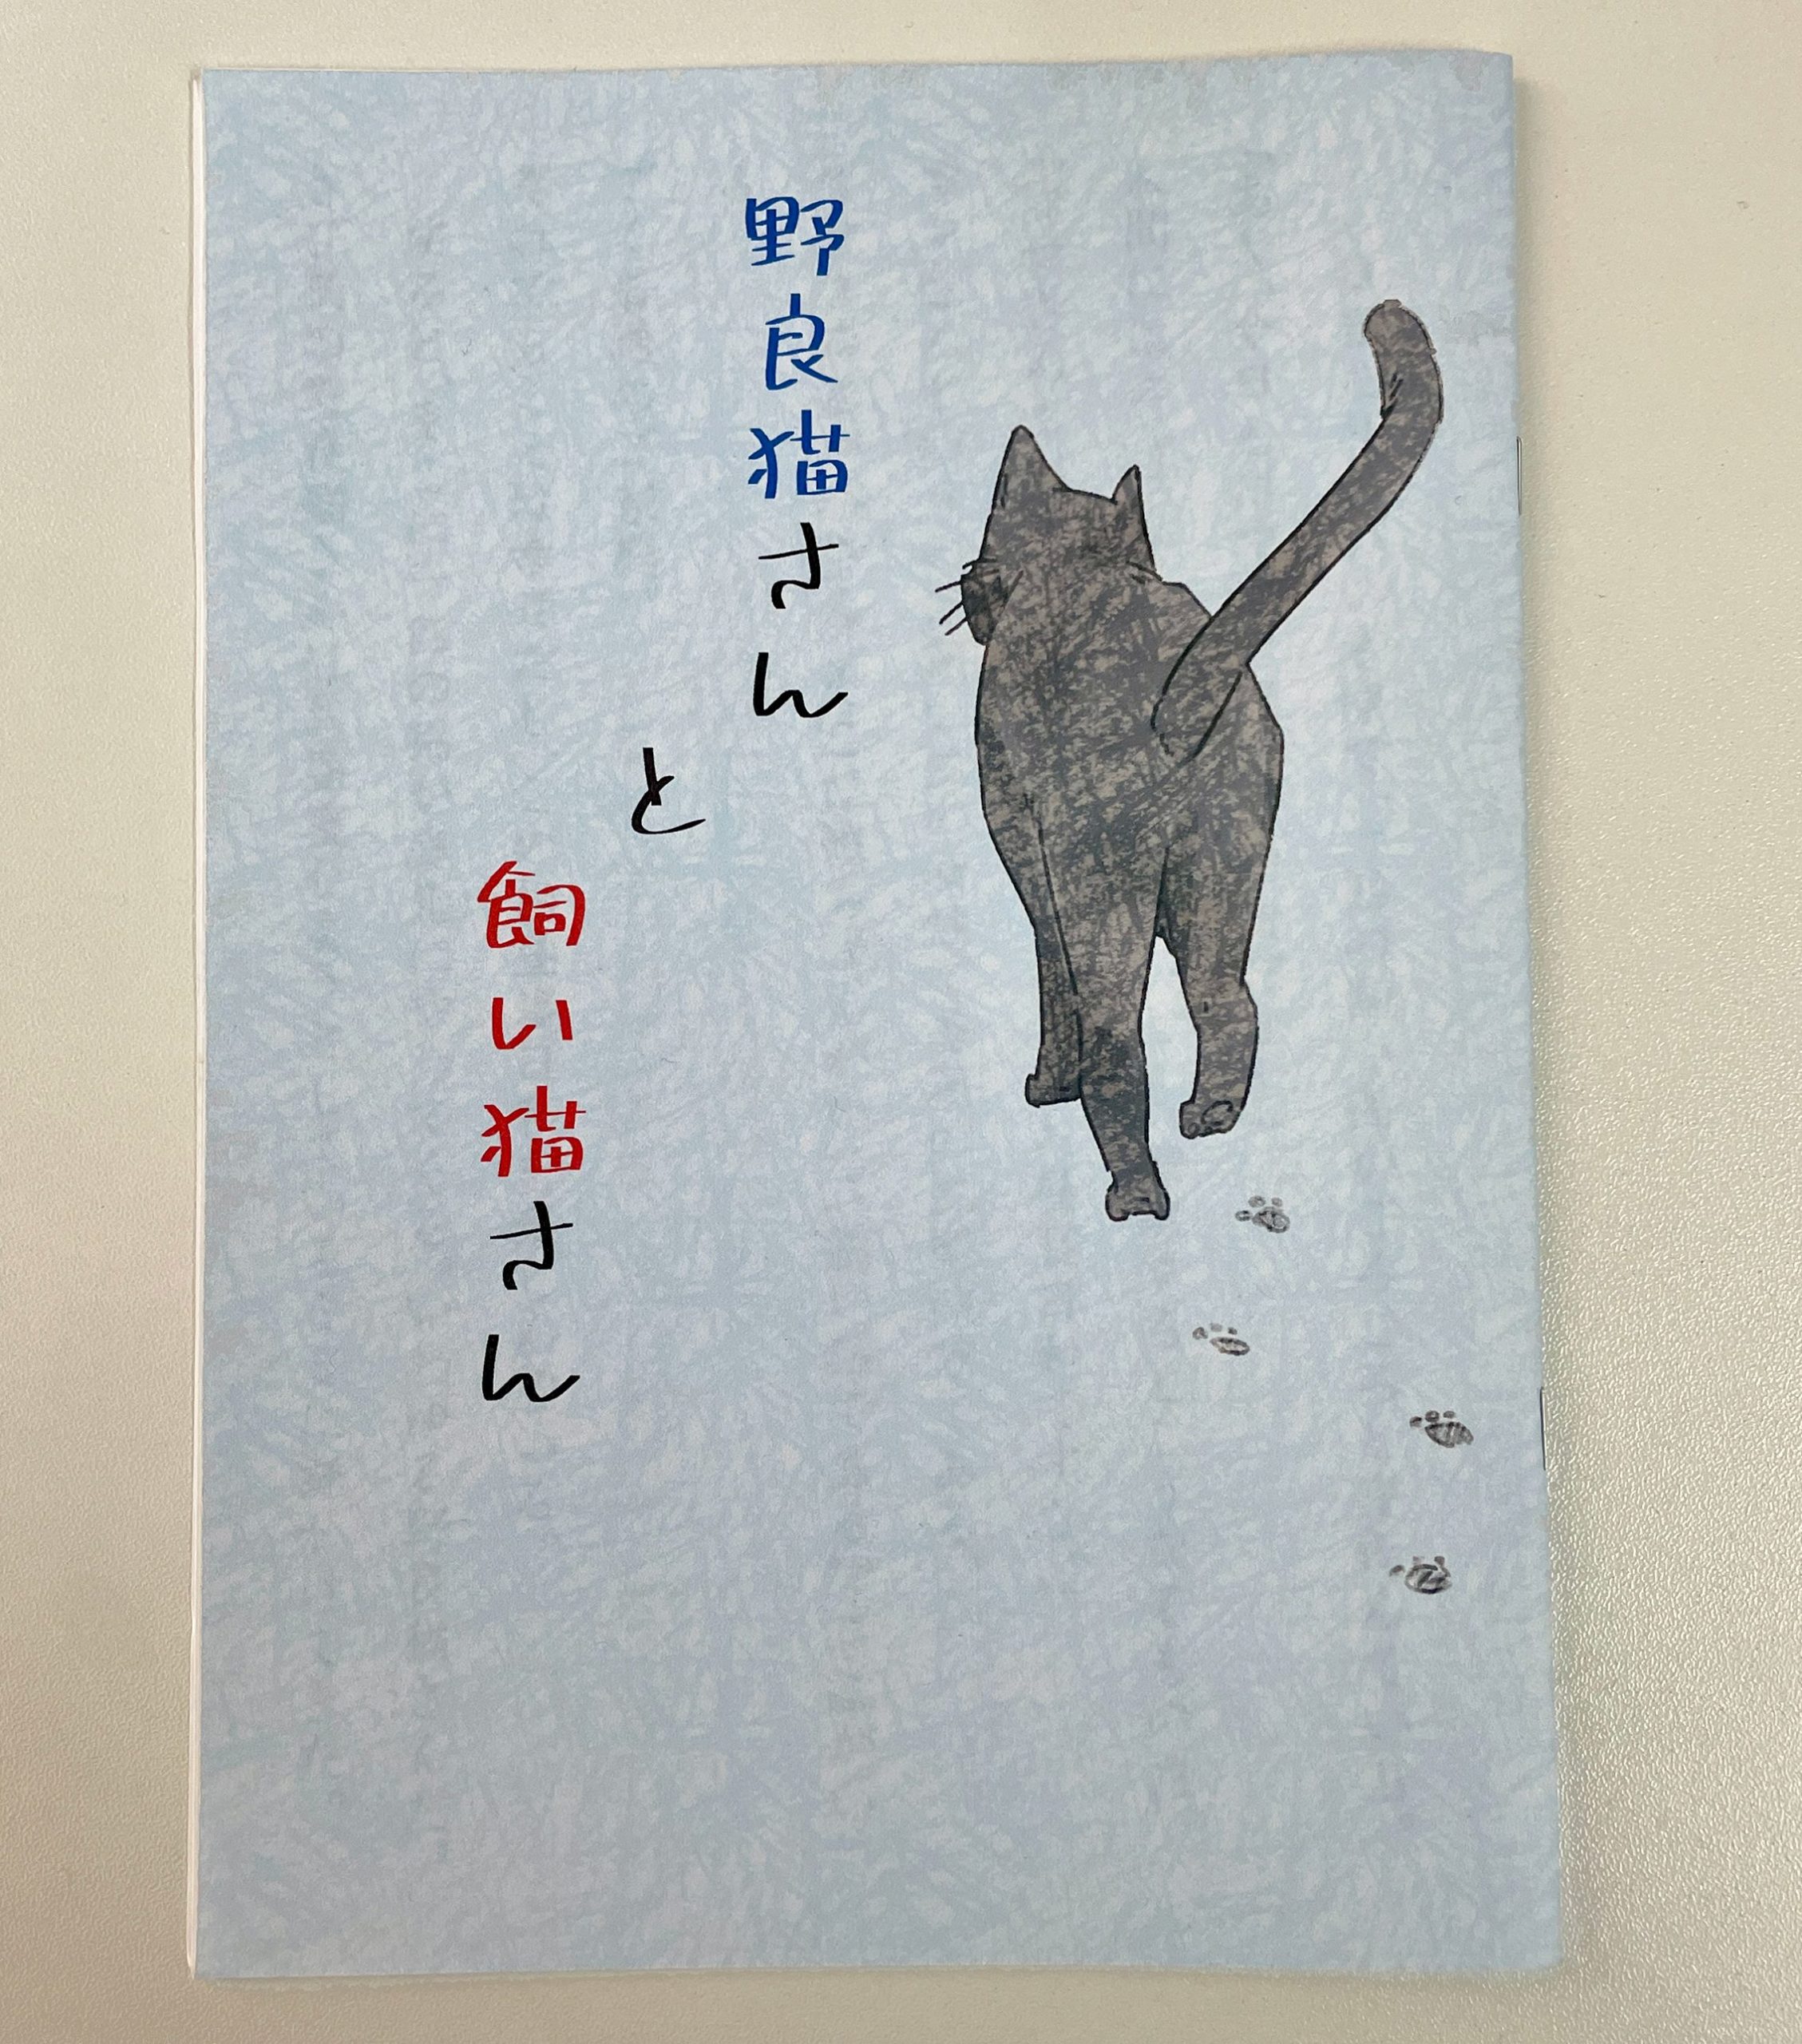 野良猫さん
と
飼い猫さん